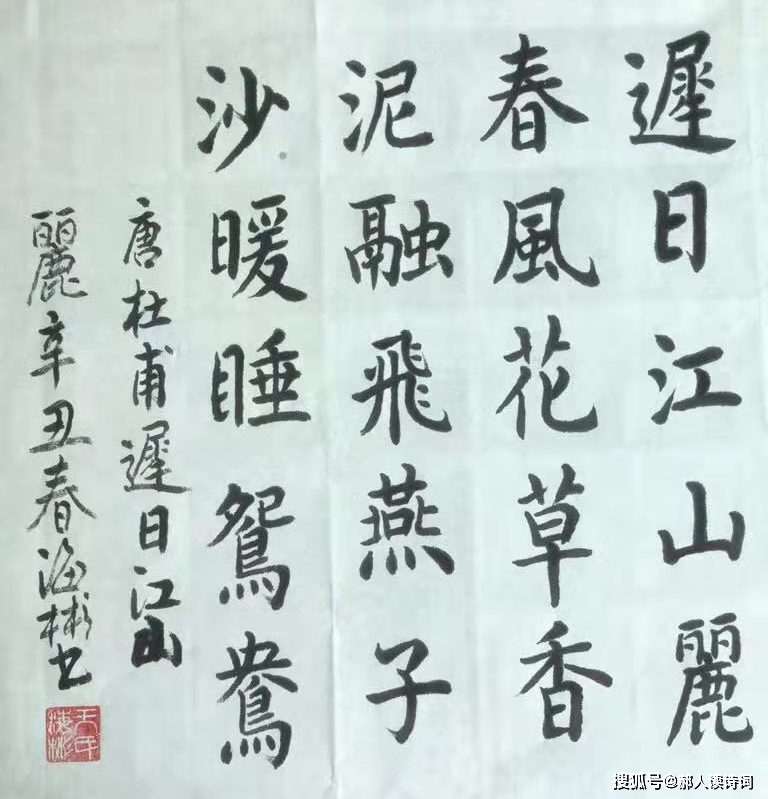 遲日江山麗
春風花草香
泥融飛燕子
沙暖睡鴛鴦
唐杜甫遲日江山
麗辛丑春海彬书
搜狐号@郝人读诗词